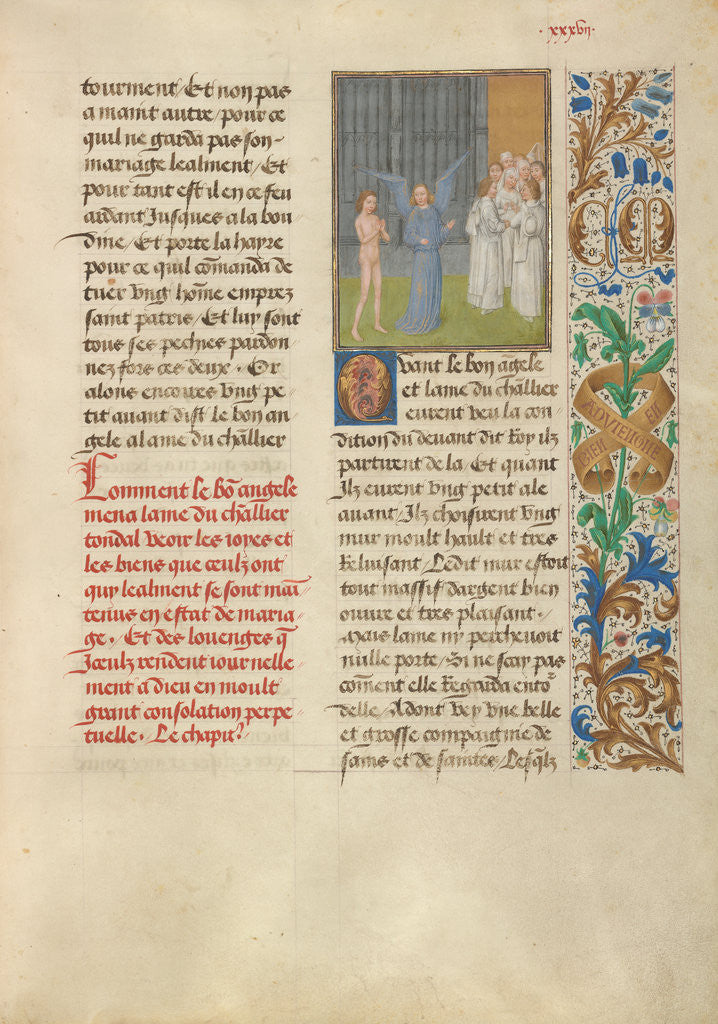 ·xxxvij·
tourment / Et non pas
a maint autre / pour ce
quil ne garda pas son-
mariage lealment / Et
pour tant est il en ce feu
ardant Jusques a la bou
dine / Et porte la hayre
pour ce quil cōmanda de
tuer vng hōme emprez
saint patris / Et luy sont
tous ses pechies pardon
nez fors ces deux · Or
alons encoires vng pe
tit auant dist le bon an
gele a lame du chl̄lier
Comment le bō angele
mena lame du chl̄lier
tondal veoir les ioyes et
les biens que ceulz ont
quy lealment se sont mai
tenus en estat de maria
ge · Et des louenges q̄
Jceulz rendent iournelle
ment a dieu en moult
grant consolation perpe
tuelle · Le chapitr̄
Quant le bon āgele
et lame du chl̄lier
eurent veu la con
dition du deuant dit Roy ilz
partirent de la / Et quant
Jlz eurent vng petit ale
auant / Jlz choisirent vng
mur moult hault et tres
Reluisant / Ledit mur estoit
tout massif dargent bien
ouure et tres plaisant ·
Mais lame ny percheuoit
nulle porte / Si ne scay pas
cōment elle Regarda ento⁹
delle / Adont vey vne belle
et grosse compaignie de
sains et de saintes / Lesq̄lz
CM
BIEN
ADVIENGNE
EN